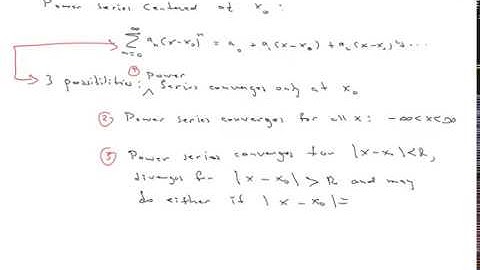 Power series centered at x₀ :
∞ Σ n=0 aₙ(x-x₀)ⁿ = a₀ + a₁(x-x₀) + a₂(x-x₀)² + ...
3 possibilities: ① Power series converges only at x₀
② Power series converges for all x: -∞<x<∞
③ Power series converges for |x-x₀|<R,
diverges for |x-x₀|>R and may
do either if |x-x₀|=